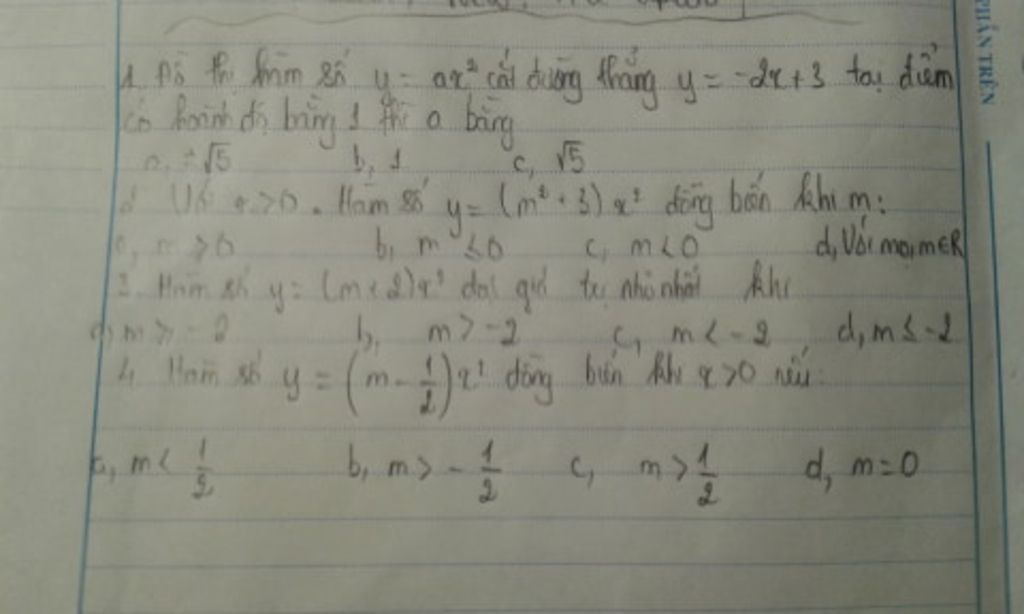 1. Đồ thị hàm số y = ax² cắt đường thẳng y = -2x + 3 tại điểm
có hoành độ bằng 1 thì a bằng
b, 1 c, √5
Với x > 0. Hàm số y = (m² + 3) x² đồng biến khi m:
b, m ≤ 0 c, m < 0 d, Với mọi m ∈ R
3. Hàm số y = (m + 2)x² đạt giá trị nhỏ nhất khi
b, m > -2 c, m < -2 d, m ≤ -2
4, Hàm số y = (m - 1/2)x² đồng biến khi x > 0 nếu:
a, m < 1/2 b, m > -1/2 c, m > 1/2 d, m = 0
PHẦN TRÊN